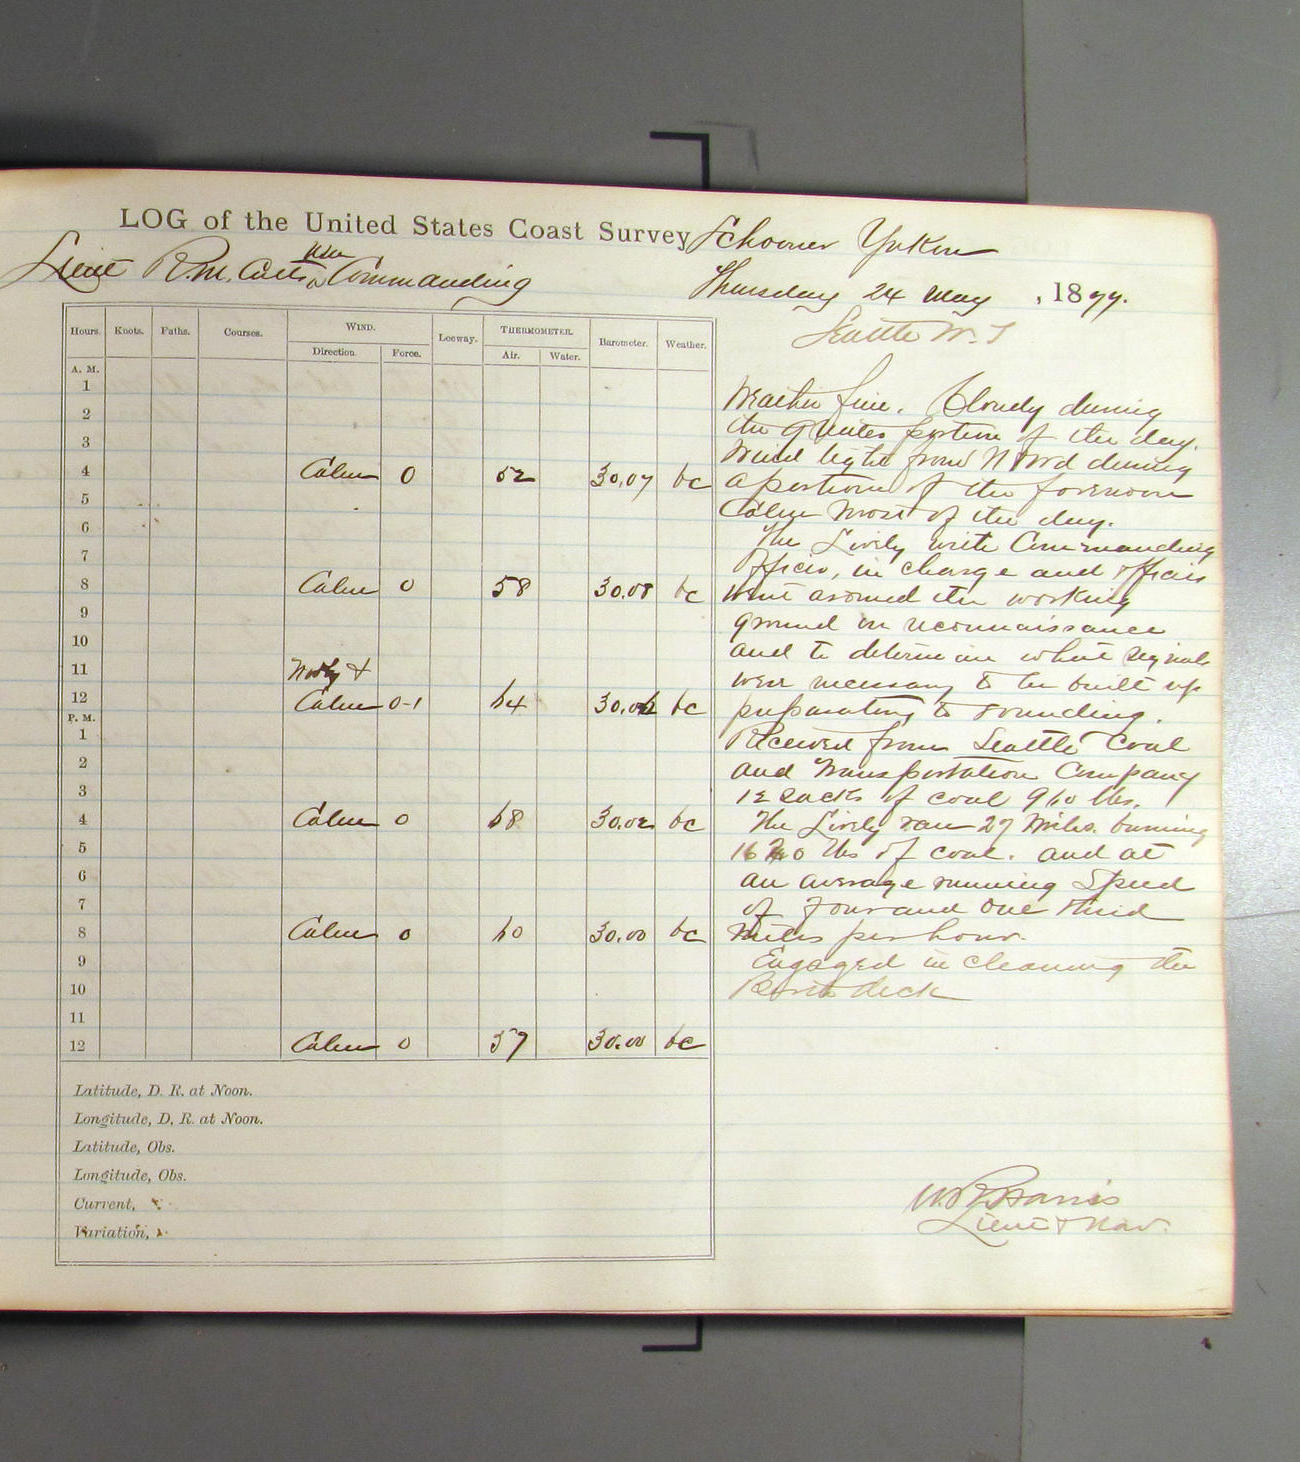 LOG of the United States Coast Survey Schooner Yukon
Lieut R. M. Cutts USN Commanding
Thursday 24 May, 1877.
Seattle W. T
Hours. Knots. Faths. Courses. WIND. Leeway. THERMOMETER. Barometer. Weather.
Direction. Force. Air. Water.
A. M.
1
2
3
4 Calm 0 52 30.07 bc
5
6
7
8 Calm 0 58 30.08 bc
9
10
11 Nthly &
12 Calm 0-1 64 30.06 bc
P. M.
1
2
3
4 Calm 0 68 30.02 bc
5
6
7
8 Calm 0 60 30.00 bc
9
10
11
12 Calm 0 57 30.00 bc
Latitude, D. R. at Noon.
Longitude, D. R. at Noon.
Latitude, Obs.
Longitude, Obs.
Current,
Variation,
Weather fine. Cloudy during
the greater portion of the day.
Wind light from N Wd during
a portion of the forenoon
Calm most of the day.
The Lively with Commanding
Officer, in charge and officers
went around the working
ground on reconnaissance
and to determine what signals
were necessary to be built up
preparatory to sounding.
Received from Seattle Coal
and Transportation Company
12 sacks of coal 960 lbs.
The Lively ran 27 miles burning
lbs of coal. and at
an average running speed
of four and one third
miles per hour.
Engaged in cleaning the
Berth deck
Harris
Lieut & Nav.